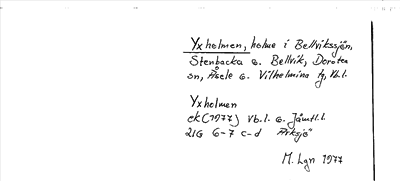 Yxholmen, holme i Bellvikssjön,
Stenbacka o. Bellvik, Dorotea
sn, Åsele o. Vilhelmina tg, Vb.l.
Yxholmen
ek (1977) Vb.l. o. Jämtl.l.
21G 6-7 c-d Arksjö
M. Lgn 1977